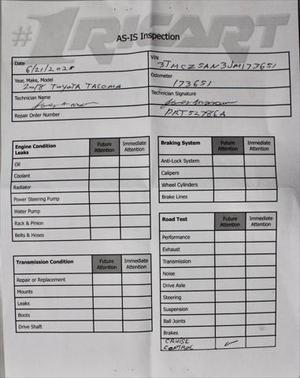 #1RICART
AS-IS Inspection
Date
VIN
3TMCZ5AN3JM173651
Year, Make, Model
Odometer
2018 TOYOTA TACOMA
173651
Technician Name
Technician Signature
Repair Order Number
Engine Condition Future Immediate
Leaks Attention Attention
Oil
Coolant
Radiator
Power Steering Pump
Water Pump
Rack & Pinion
Belts & Hoses
Transmission Condition Future Immediate
Attention Attention
Repair or Replacement
Mounts
Leaks
Boots
Drive Shaft
Braking System Future Immediate
Attention Attention
Anti-Lock System
Calipers
Wheel Cylinders
Brake Lines
Road Test Future Immediate
Attention Attention
Performance
Exhaust
Transmission
Noise
Drive Axle
Steering
Suspension
Ball Joints
Brakes
CRUISE
CONTROL ✓